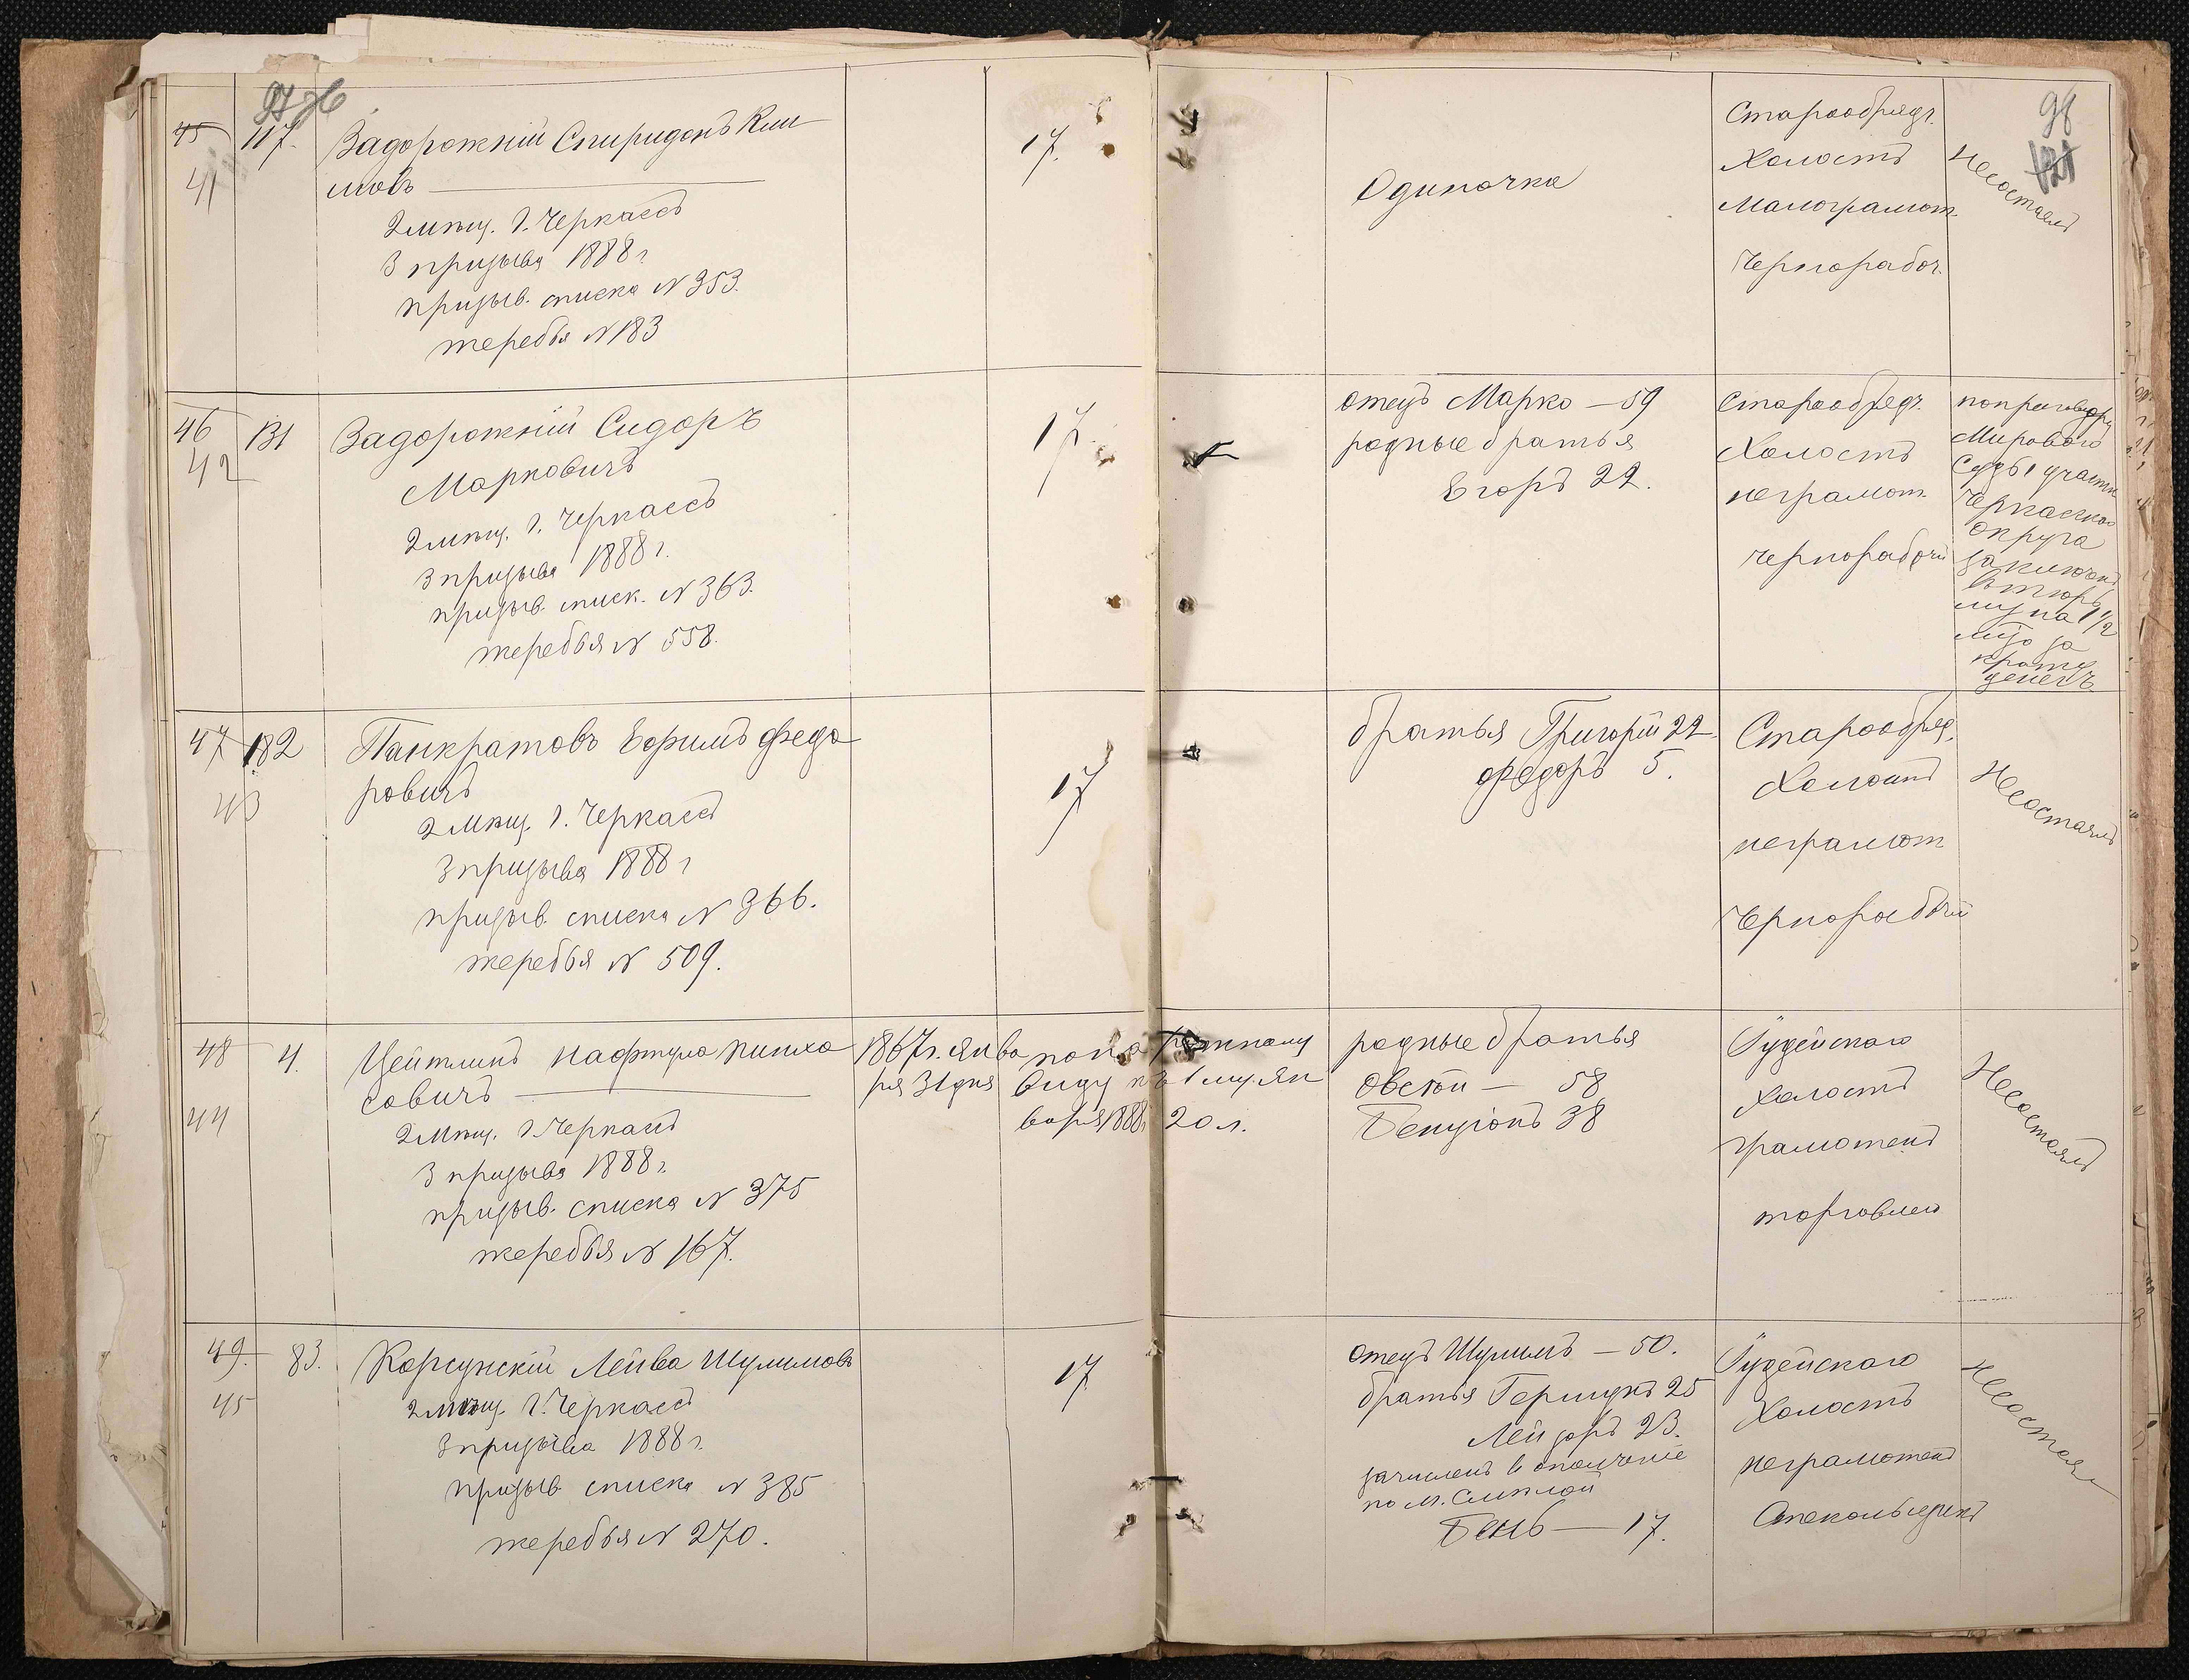 98
45
41
117.
Задорожній Спиридонъ Кли
мовъ
2 мѣщ. г. Черкассъ
3 призыва 1888 г.
призыв. списка № 353.
жеребья № 183
17.
Одиночка
Старообрядч.
Холостъ
Малограмот.
Чернорабоч.
Не состоялъ
46
42
131
Задорожній Сидоръ
Марковичъ
2 мѣщ. г. Черкассъ
3 призыва 1888 г.
призыв. списк. № 363.
жеребья № 558.
17.
отецъ Марко — 59
родные братья
Егоръ 22.
Старообрядч.
Холостъ
неграмот.
чернорабочій
по приговору
Мирового
Судьи участк
Черкасскаго
округа
заключенъ
въ тюрь
му на 1 1/2
кражу
денегъ
47
43
182
Панкратовъ Ефимъ Федо
ровичъ
2 мѣщ. г. Черкассъ
3 призыва 1888 г
призыв. списка № 366.
жеребья № 509.
17
братья Григорій 22.
Федоръ 5.
Старообряд.
Холостъ
неграмот
Чернорабочій
Не состоялъ
48
44
4.
Цейтлинъ Нафтула Пинхо
совичъ
2 мѣщ. г. Черкассъ
3 призыва 1888 г.
призыв. списка № 375
жеребья № 167.
1867 г. янва
ря 31 дня
по наружному
виду къ 1 му. Ян
варя 1888 г. 20 л.
родные братья
Овсѣй — 58
Бенціонъ 38
Іудейскаго
Холостъ
грамотенъ
торговлею
Не состоялъ
49.
45
83.
Корсунскій Лейба Шулимовъ
2 мѣщ. г. Черкассъ
3 призыва 1888 г.
призыв. списка № 385
жеребья № 270.
17
отецъ Шулимъ — 50.
братья Гершукъ 25
Лейзоръ 23.
зачисленъ в ополченіе
по М. Смѣлой
Бень — 17.
Іудейскаго
Холостъ
неграмотенъ
Стекольщикъ
Не состоялъ